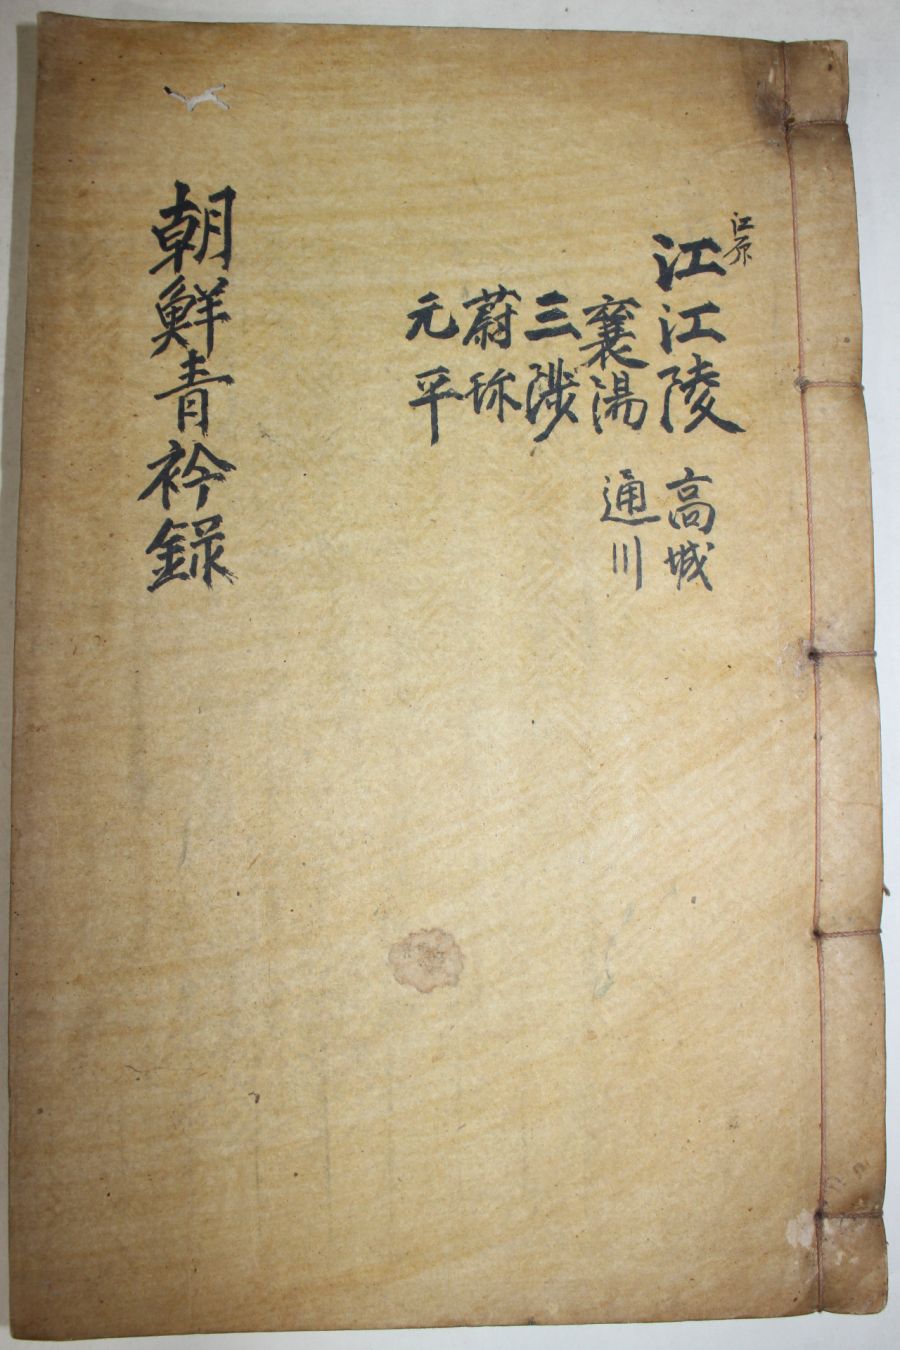 江原
江江陵 高城
襄湯 通川
三陟
蔚珎
元平
朝鮮青衿錄